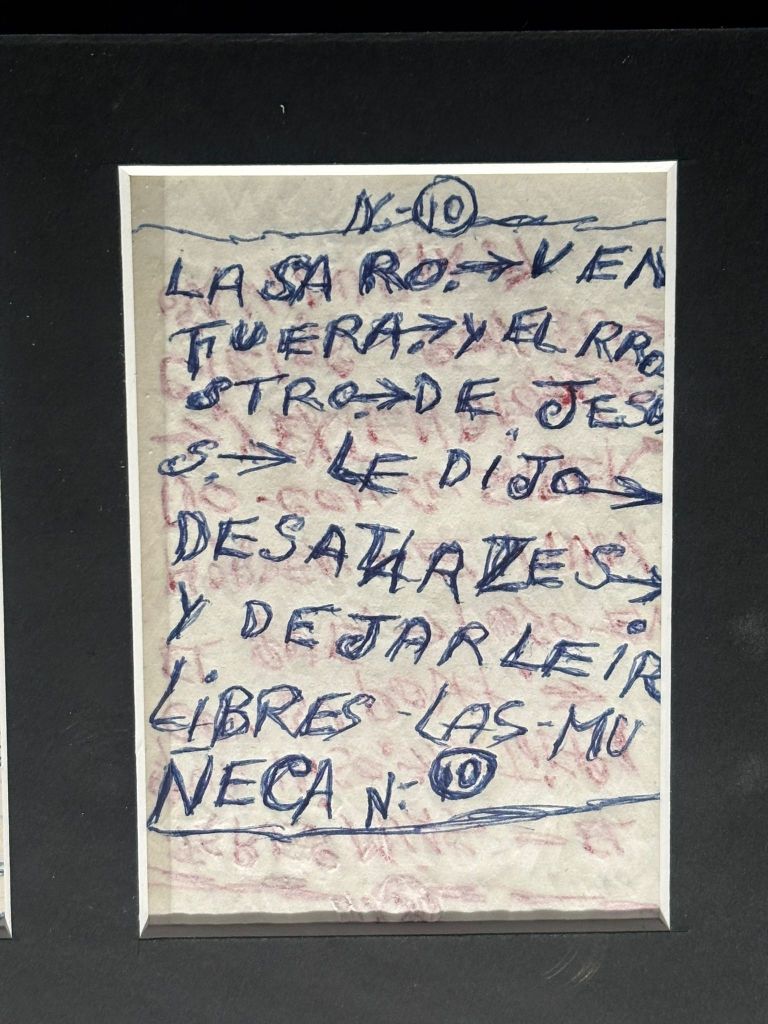 N.-10
LASARO.→VEN
FUERA.→Y EL RRO
STRO.→DE JESU
S.→ LE DIJO→
DESATARZES→
Y DEJARLE IR
LIBRES-LAS-MU
ÑECA N-10